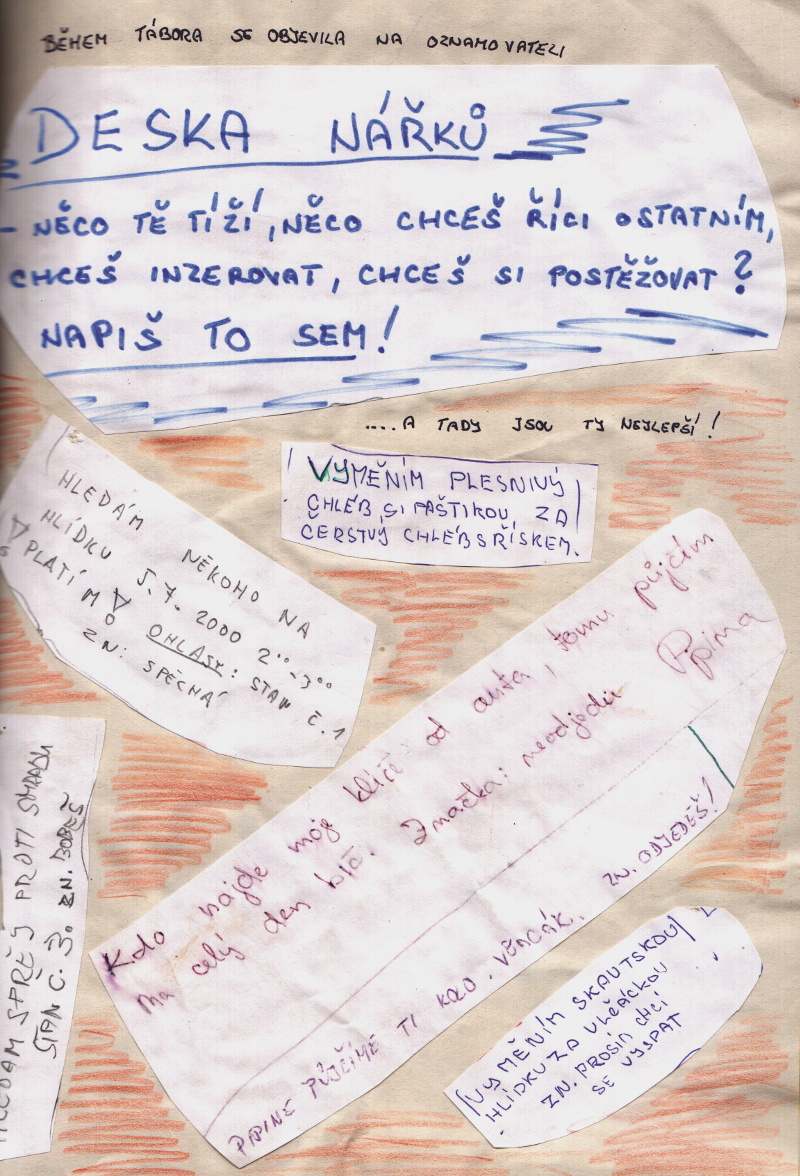 BĚHEM TÁBORA SE OBJEVILA NA OZNAMOVATELI
DESKA NÁŘKŮ
- NĚCO TĚ TÍŽÍ, NĚCO CHCEŠ ŘÍCI OSTATNÍM,
CHCEŠ INZEROVAT, CHCEŠ SI POSTĚŽOVAT?
NAPIŠ TO SEM!
....A TADY JSOU TY NEJLEPŠÍ!
VYMĚNÍM PLESNIVÝ
CHLÉB SI PAŠTIKOU, ZA
ČERSTVÝ CHLÉB S ŘÍSKEM.
HLEDÁM NĚKOHO NA
HLÍDKU 5.7. 2000 2°°-3°°
! PLATÍM! OHLASY: STAN Č.1
ZN: SPĚCHÁ
Kdo najde moje klíče od auta, tomu půjčím
na celý den kolo. Značka: neodjedu Pipina
PIPINE PŮJČÍME TI KOLO. VĚNČÁK. ZN. ODJEDEŠ!
HLEDÁM SPREJ PROTI SMRADU
STAN Č. 3. ZN. BOBEŠ
VYMĚNÍM SKAUTSKOU
HLÍDKU ZA VLČÁCKOU
ZN. PROSÍM CHCI
SE VYSPAT